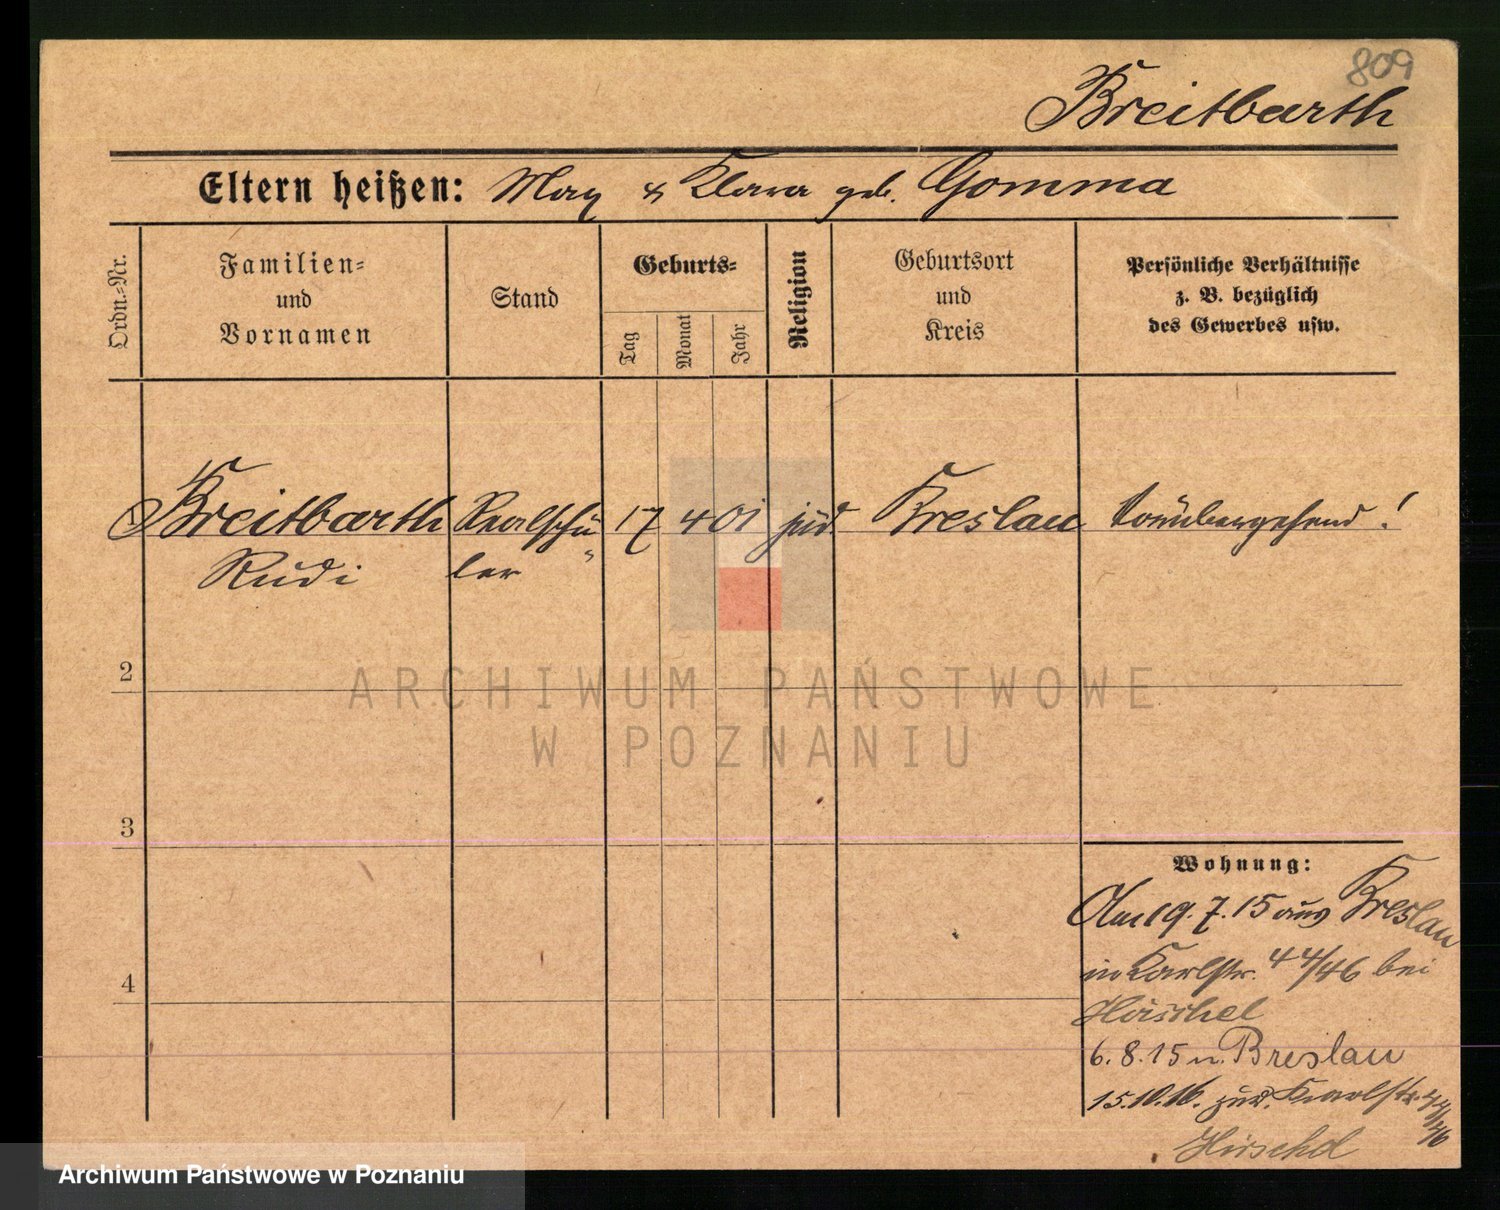 809
Breitbarth
Eltern heißen: Max & Klara geb. Gomma
Ordn.=Nr.
Familien=
und
Vornamen
Stand
Geburts=
Tag
Monat
Jahr
Religion
Geburtsort
und
Kreis
Persönliche Verhältnisse
z. B. bezüglich
des Gewerbes usw.
Breitbarth Realschü 17 4 01 jüd. Breslau Vorübergehend!
Rudi ler
2
ARCHIWUM PAŃSTWOWE
W POZNANIU
3
Wohnung:
Am 19. 7. 15 aus Breslau
in Karlstr. 44/46 bei
6. 8. 15 n. Breslau
15.10.16. zur. Karlstr. 44/46
Archiwum Państwowe w Poznaniu
4